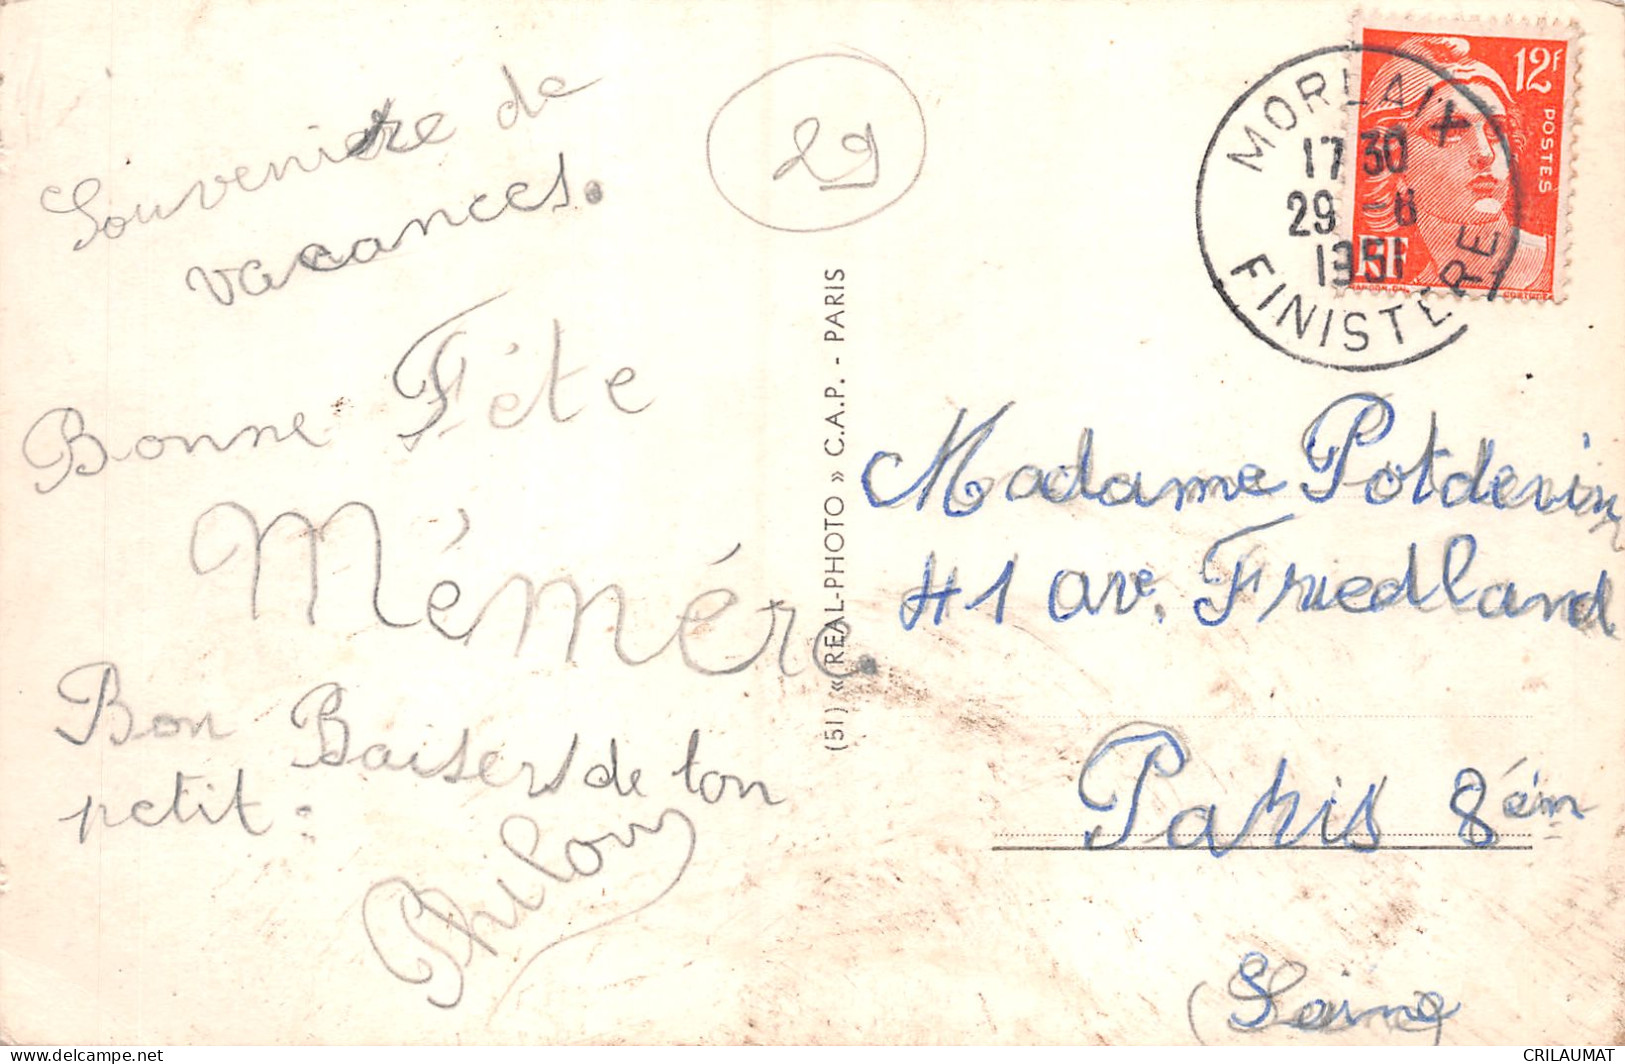 Souvenire de
vacances.
Bonne Fête
Mémére.
Bon Baisers de ton
petit :
29
(51) « REAL-PHOTO » C.A.P. - PARIS
MORLAIX
17 30
29 -8
1951
FINISTÈRE
12F
POSTES
RF
Madame Potdevin
41 ave. Friedland
Paris 8ém
(Seine)
www.delcampe.net
CRILAUMAT